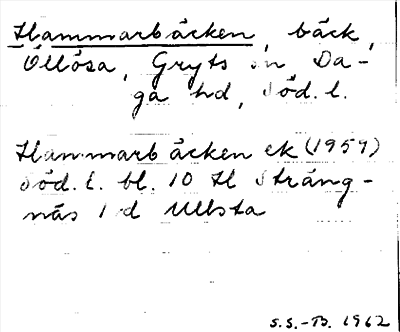 Hammarbäcken, bäck,
Ullösa, Gryts sn Da-
ga hd, Söd. l.
Hammarbäcken ek (1957)
Söd. l. bl. 10 H Sträng-
näs 1 d Ullsta
S.S.-B. 1962